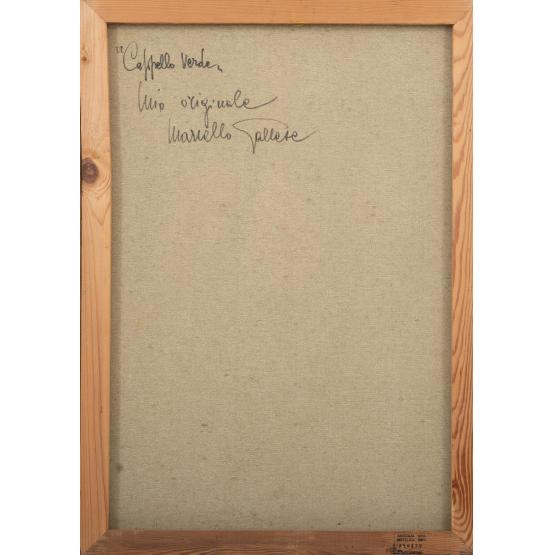 "Cappello Verde"
Mio originale
Marcello Pallese